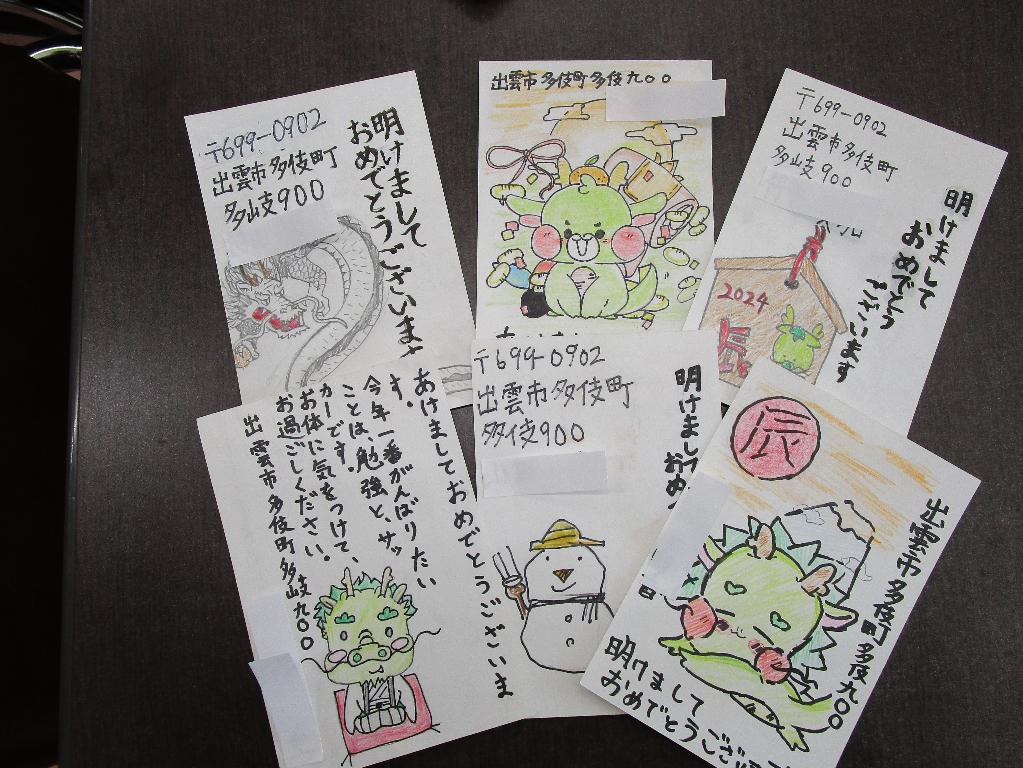 〒699-0902
出雲市多伎町
多岐900
明けまして
おめでとうございます
出雲市多伎町多伎九〇〇
〒699-0902
出雲市多伎町
多岐900
明けまして
おめでとう
ございます
2024
辰
あけましておめでとうございま
す。
今年一番がんばりたい
ことは、勉強と、サッ
カーです。
お体に気をつけて、
お過ごしください。
出雲市多伎町多岐九〇〇
〒699-0902
出雲市多伎町
多伎900
明けまして
おめ
辰
出雲市多伎町多伎九〇〇
明けまして
おめでとうござい